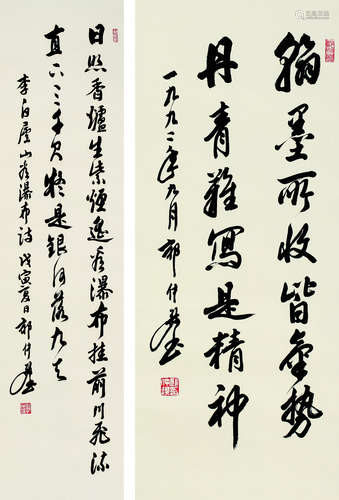 日照香爐生紫煙遙看瀑布挂前川飛流
直下三千尺疑是銀河落九天
李白廬山看瀑布詩 戊寅夏日郭仲選
翰墨所收皆氣勢
丹青難寫是精神
一九九二年九月郭仲選